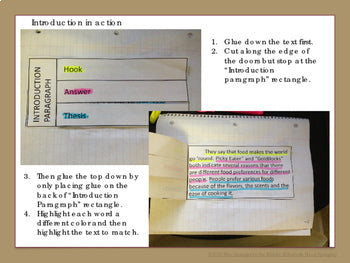 Introduction in action
1. Glue down the text first.
2. Cut along the edge of
the doors but stop at the
"Introduction
paragraph" rectangle.
INTRODUCTION
PARAGRAPH
Hook
Answer
Thesis
They say that food makes the world
go 'round. "Picky Eater" and "Goldilocks"
both indicate several reasons that there
are different food preferences for different
people. People prefer various foods
because of the flavors, the scents and the
ease of cooking it.
3. Then glue the top down by
only placing glue on the
back of "Introduction
Paragraph" rectangle.
4. Highlight each word a
different color and then
highlight the text to match.